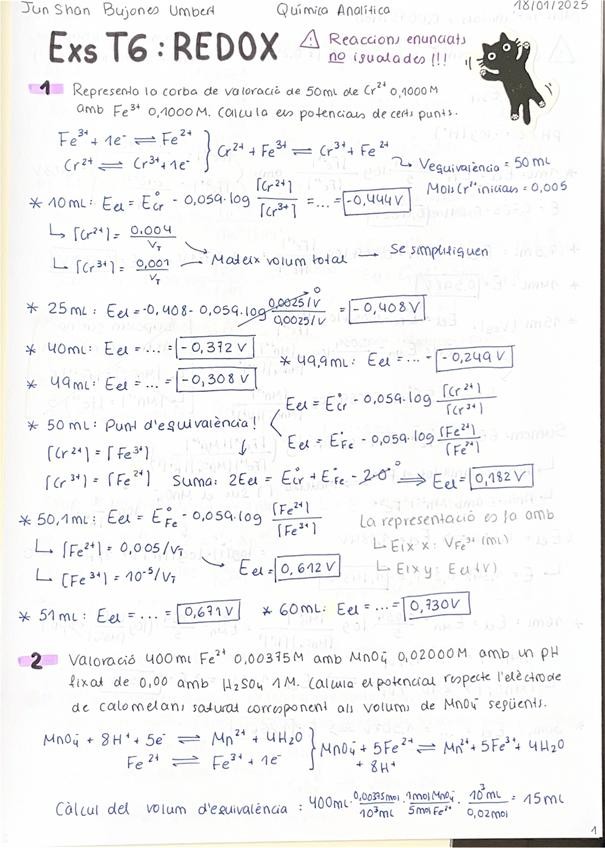 Jun Shan Bujones Umbert Química Analítica 18/01/2025
Exs T6: REDOX ⚠ Reaccions enunciats
no igualades !!!
1 Represento la corba de valoració de 50mL de Cr²⁺ 0,1000M
amb Fe³⁺ 0,1000M. Calcula els potencials de certs punts.
Fe³⁺ + 1e⁻ ⇌ Fe²⁺
Cr²⁺ ⇌ Cr³⁺ + 1e⁻ } Cr²⁺ + Fe³⁺ ⇌ Cr³⁺ + Fe²⁺
↳ Vequivalència = 50 mL
Mols Cr²⁺ inicials = 0,005
* 10mL: Eel = E°Cr - 0,059·log [Cr²⁺]/[Cr³⁺] = ... = -0,444V
↳ [Cr²⁺] = 0.004/VT
↳ [Cr³⁺] = 0,001/VT → Mateix volum total → Se simplifiquen
* 25mL: Eel = -0,408 - 0,059·log 0,0025/V / 0,0025/V ⁰ = -0,408V
* 40mL: Eel = ... = -0,372 V
* 49,9mL: Eel = ... = -0,249V
* 49mL: Eel = ... = -0,308V
* 50mL: Punt d'equivalència!
Eel = E°Cr - 0,059·log [Cr²⁺]/[Cr³⁺]
Eel = E°Fe - 0,059·log [Fe²⁺]/[Fe²⁺]
[Cr²⁺] = [Fe³⁺]
[Cr³⁺] = [Fe²⁺] Suma: 2Eel = E°Cr + E°Fe - 2·0 ⁰ ⟹ Eel = 0,182V
* 50,1mL: Eel = E°Fe - 0,059·log [Fe²⁺]/[Fe³⁺]
↳ [Fe²⁺] = 0,005/VT
↳ [Fe³⁺] = 10⁻⁵/VT → Eel = 0,612V
La representació es fa amb
↳ Eix x: VFe³⁺ (mL)
↳ Eix y: Eel (V)
* 51mL: Eel = ... = 0,671V * 60mL: Eel = ... = 0,730V
2 Valoració 400mL Fe²⁺ 0,00375M amb MnO₄⁻ 0,02000M amb un pH
fixat de 0,00 amb H₂SO₄ 1M. Calcula el potencial respecte l'elèctrode
de calomelans saturat corresponent als volums de MnO₄⁻ següents.
MnO₄⁻ + 8H⁺ + 5e⁻ ⇌ Mn²⁺ + 4H₂O
Fe²⁺ ⇌ Fe³⁺ + 1e⁻ } MnO₄⁻ + 5Fe²⁺ ⇌ Mn²⁺ + 5Fe³⁺ + 4H₂O
+ 8H⁺
Càlcul del volum d'equivalència: 400mL · 0,00375mol/10³mL · 1mol MnO₄⁻/5mol Fe²⁺ · 10³mL/0,02mol = 15mL
1